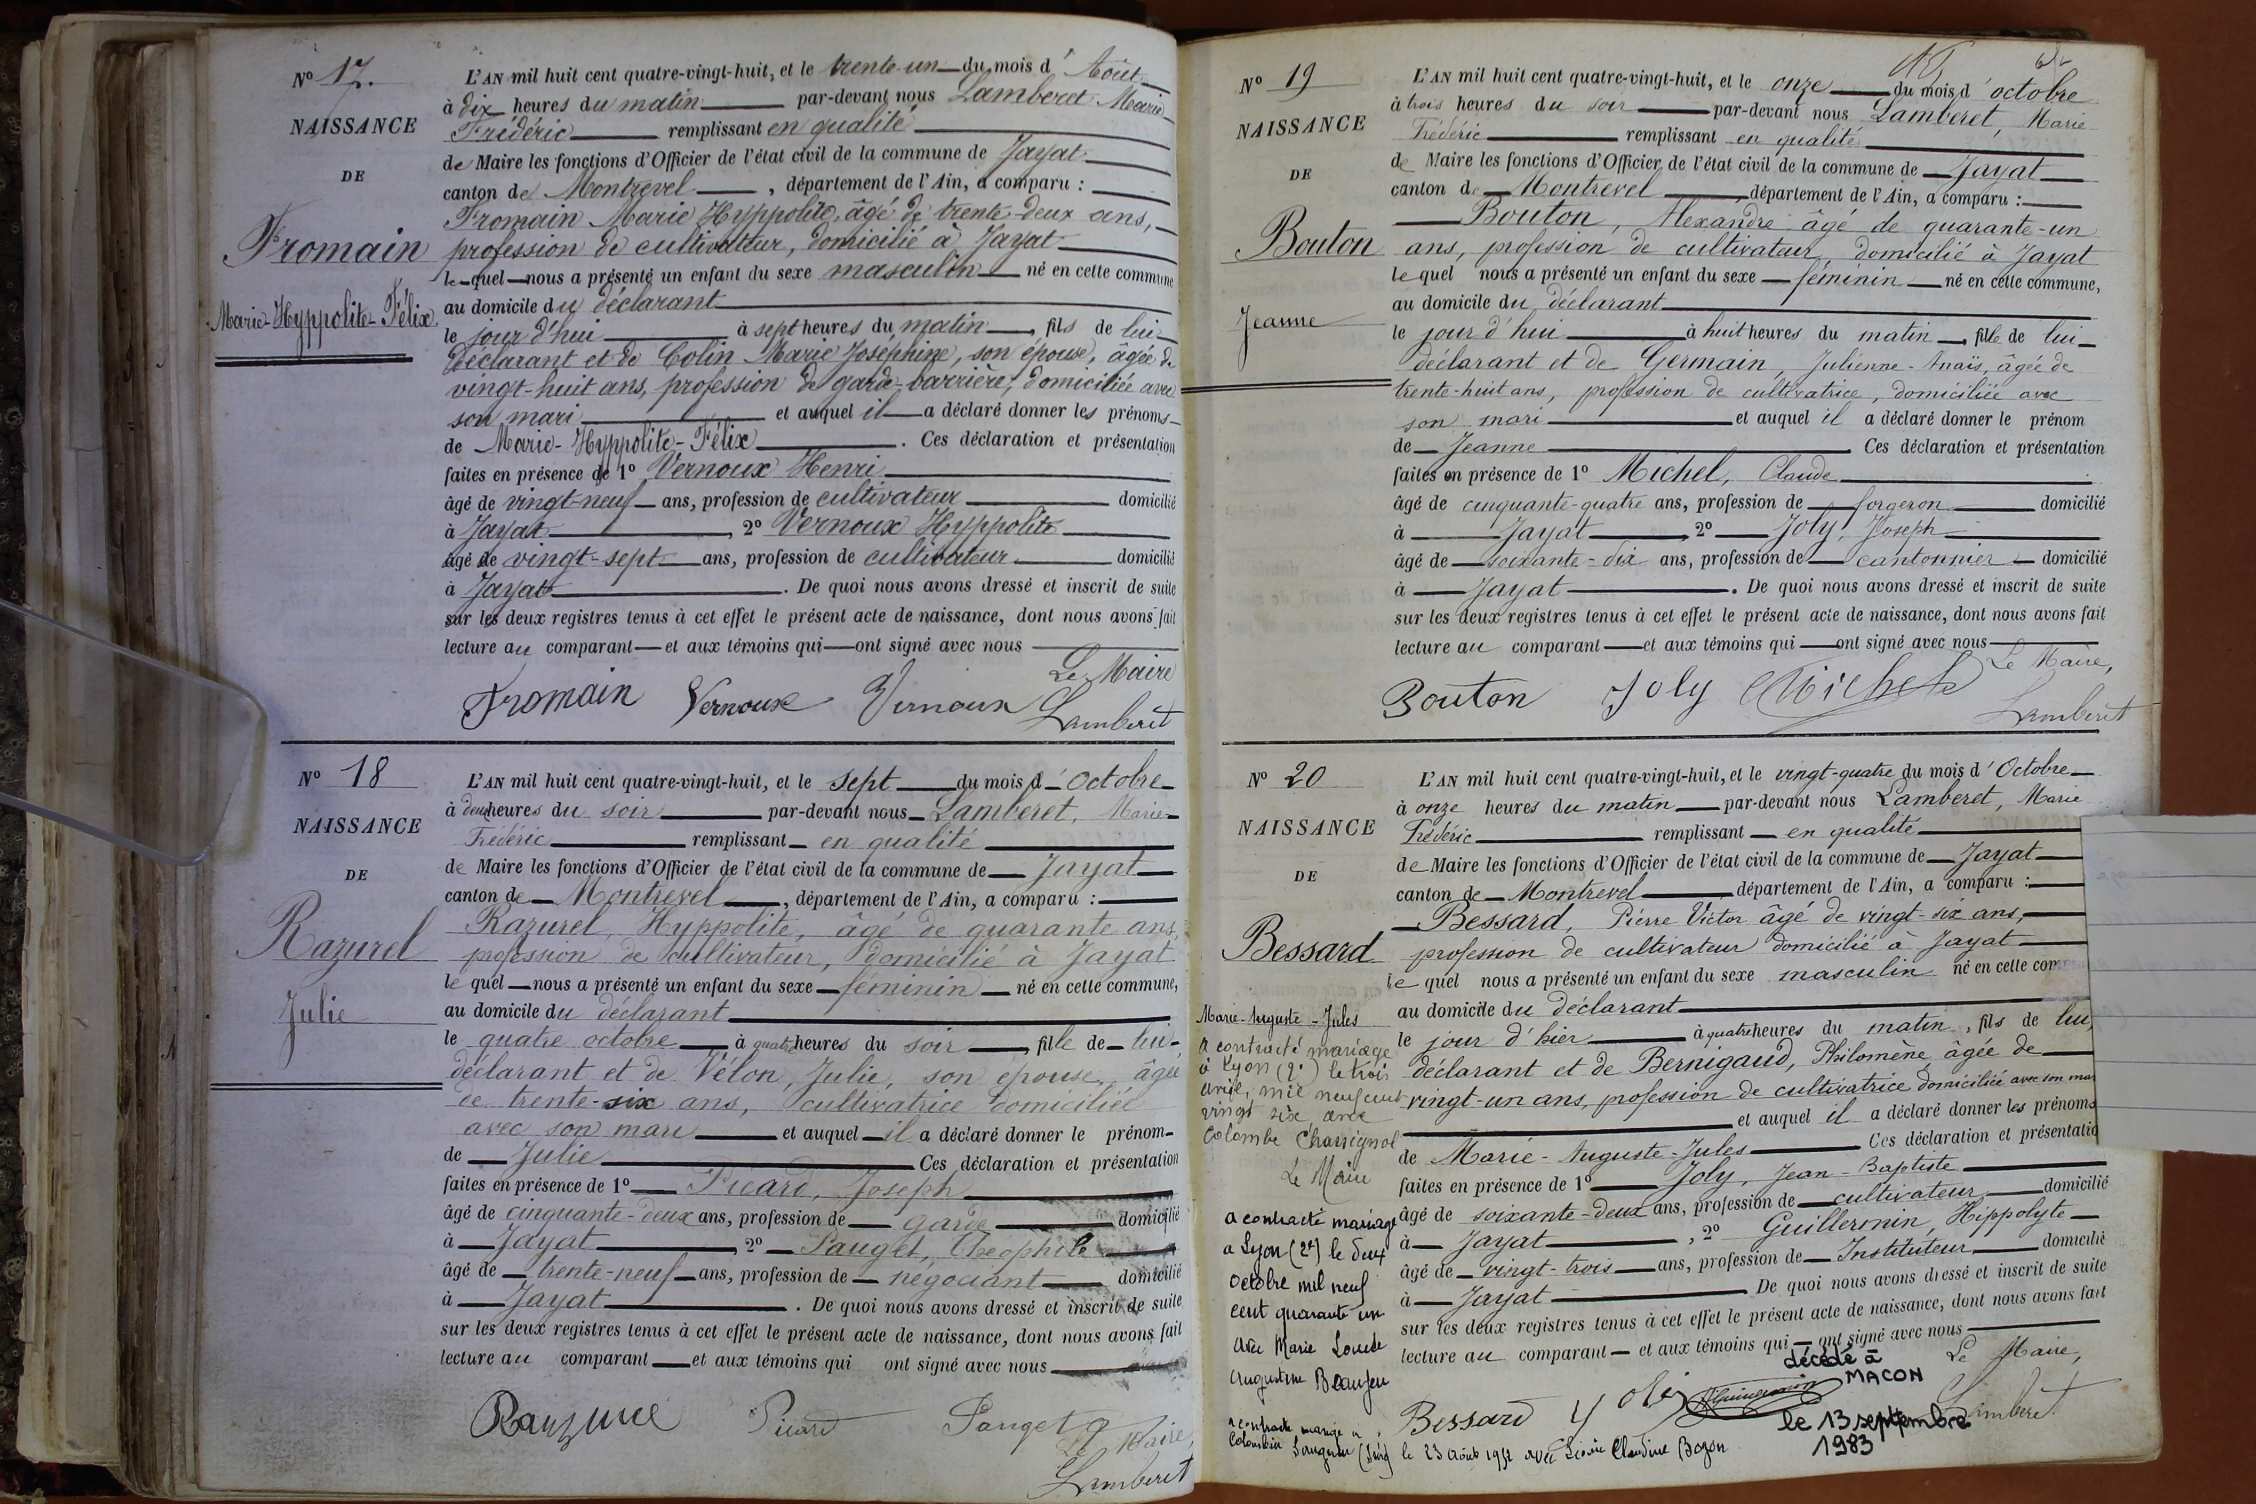 Nº 17.
NAISSANCE
DE
Fromain
Marie-Hyppolite-Félix
L'AN mil huit cent quatre-vingt-huit, et le trente-un du mois d'Août
à dix heures du matin par-devant nous Lamberet Marie
Frédéric remplissant en qualité
de Maire les fonctions d'Officier de l'état civil de la commune de Jayat
canton de Montrevel, département de l'Ain, a comparu :
Fromain Marie Hyppolite, âgé de trente-deux ans,
profession de cultivateur, domicilié à Jayat
le-quel nous a présenté un enfant du sexe masculin né en cette commune
au domicile du déclarant
le jour d'hui à sept heures du matin, fils de lui
déclarant et de Colin Marie Joséphine, son épouse, âgée de
vingt-huit ans, profession de garde-barrière, domiciliée avec
son mari et auquel il a déclaré donner les prénoms
de Marie-Hyppolite-Félix. Ces déclaration et présentation
faites en présence de 1º Vernoux Henri
âgé de vingt-neuf ans, profession de cultivateur domicilié
à Jayat, 2º Vernoux Hyppolite
âgé de vingt-sept ans, profession de cultivateur domicilié
à Jayat. De quoi nous avons dressé et inscrit de suite
sur les deux registres tenus à cet effet le présent acte de naissance, dont nous avons fait
lecture au comparant et aux témoins qui ont signé avec nous
Le Maire
Fromain Vernoux Vernoux Lamberet
Nº 18
NAISSANCE
DE
Razurel
Julie
L'AN mil huit cent quatre-vingt-huit, et le sept du mois d'Octobre
à deux heures du soir par-devant nous Lamberet, Marie
Frédéric remplissant en qualité
de Maire les fonctions d'Officier de l'état civil de la commune de Jayat
canton de Montrevel, département de l'Ain, a comparu :
Razurel, Hyppolite, âgé de quarante ans,
profession de cultivateur, domicilié à Jayat
le quel nous a présenté un enfant du sexe féminin né en cette commune,
au domicile du déclarant
le quatre octobre à quatre heures du soir, fille de lui
déclarant et de Vélon, Julie, son épouse, âgée
de trente-six ans, cultivatrice domiciliée
avec son mari et auquel il a déclaré donner le prénom
de Julie Ces déclaration et présentation
faites en présence de 1º Picard, Joseph
âgé de cinquante-deux ans, profession de garde domicilié
à Jayat, 2º Pauget, Théophile
âgé de trente-neuf ans, profession de négociant domicilié
à Jayat. De quoi nous avons dressé et inscrit de suite
sur les deux registres tenus à cet effet le présent acte de naissance, dont nous avons fait
lecture au comparant et aux témoins qui ont signé avec nous
Picard Pauget
Le Maire,
Lamberet
Nº 19
NAISSANCE
DE
Bouton
Jeanne
L'AN mil huit cent quatre-vingt-huit, et le onze du mois d'octobre
à trois heures du soir par-devant nous Lamberet, Marie
Frédéric remplissant en qualité
de Maire les fonctions d'Officier de l'état civil de la commune de Jayat
canton de Montrevel département de l'Ain, a comparu :
Bouton, Alexandre âgé de quarante-un
ans, profession de cultivateur, domicilié à Jayat
le quel nous a présenté un enfant du sexe féminin né en cette commune,
au domicile du déclarant
le jour d'hui à huit heures du matin, fille de lui
déclarant et de Germain, Julienne-Anaïs, âgée de
trente-huit ans, profession de cultivatrice, domiciliée avec
son mari et auquel il a déclaré donner le prénom
de Jeanne Ces déclaration et présentation
faites en présence de 1º Michel, Claude
âgé de cinquante-quatre ans, profession de forgeron domicilié
à Jayat, 2º Joly, Joseph
âgé de soixante-dix ans, profession de cantonnier domicilié
à Jayat. De quoi nous avons dressé et inscrit de suite
sur les deux registres tenus à cet effet le présent acte de naissance, dont nous avons fait
lecture au comparant et aux témoins qui ont signé avec nous
Le Maire,
Bouton Joly Michel Lamberet
Nº 20
NAISSANCE
DE
Bessard
Marie-Auguste-Jules
a contracté mariage
à Lyon (2e) le trois
avril, mil neuf cent
vingt six avec
Colombe Charvignol
Le Maire
a contracté mariage
a Lyon (2e) le deux
octobre mil neuf
cent quarante un
avec Marie Louise
Augustine Beaujeu
a contracté mariage a
Colombier Saugnieu (Isère) le 23 août 1952 avec Léonie Claudine Bozon
L'AN mil huit cent quatre-vingt-huit, et le vingt-quatre du mois d'Octobre
à onze heures du matin par-devant nous Lamberet, Marie
Frédéric remplissant en qualité
de Maire les fonctions d'Officier de l'état civil de la commune de Jayat
canton de Montrevel département de l'Ain, a comparu :
Bessard, Pierre Victor âgé de vingt-six ans,
profession de cultivateur domicilié à Jayat
le quel nous a présenté un enfant du sexe masculin né en cette com
au domicile du déclarant
le jour d'hier à quatre heures du matin, fils de lui,
déclarant et de Bernigaud, Philomène âgée de
vingt-un ans, profession de cultivatrice domiciliée avec son mari
et auquel il a déclaré donner les prénoms
de Marie-Auguste-Jules Ces déclaration et présentatio
faites en présence de 1º Joly, Jean-Baptiste
âgé de soixante-deux ans, profession de cultivateur domicilié
à Jayat, 2º Guillermin, Hippolyte
âgé de vingt-trois ans, profession de Instituteur domicilié
à Jayat De quoi nous avons dressé et inscrit de suite
sur les deux registres tenus à cet effet le présent acte de naissance, dont nous avons fait
lecture au comparant et aux témoins qui ont signé avec nous
Le Maire,
Bessard Joly Guillermin Lamberet
décédé à
MACON
le 13 septembre
1983